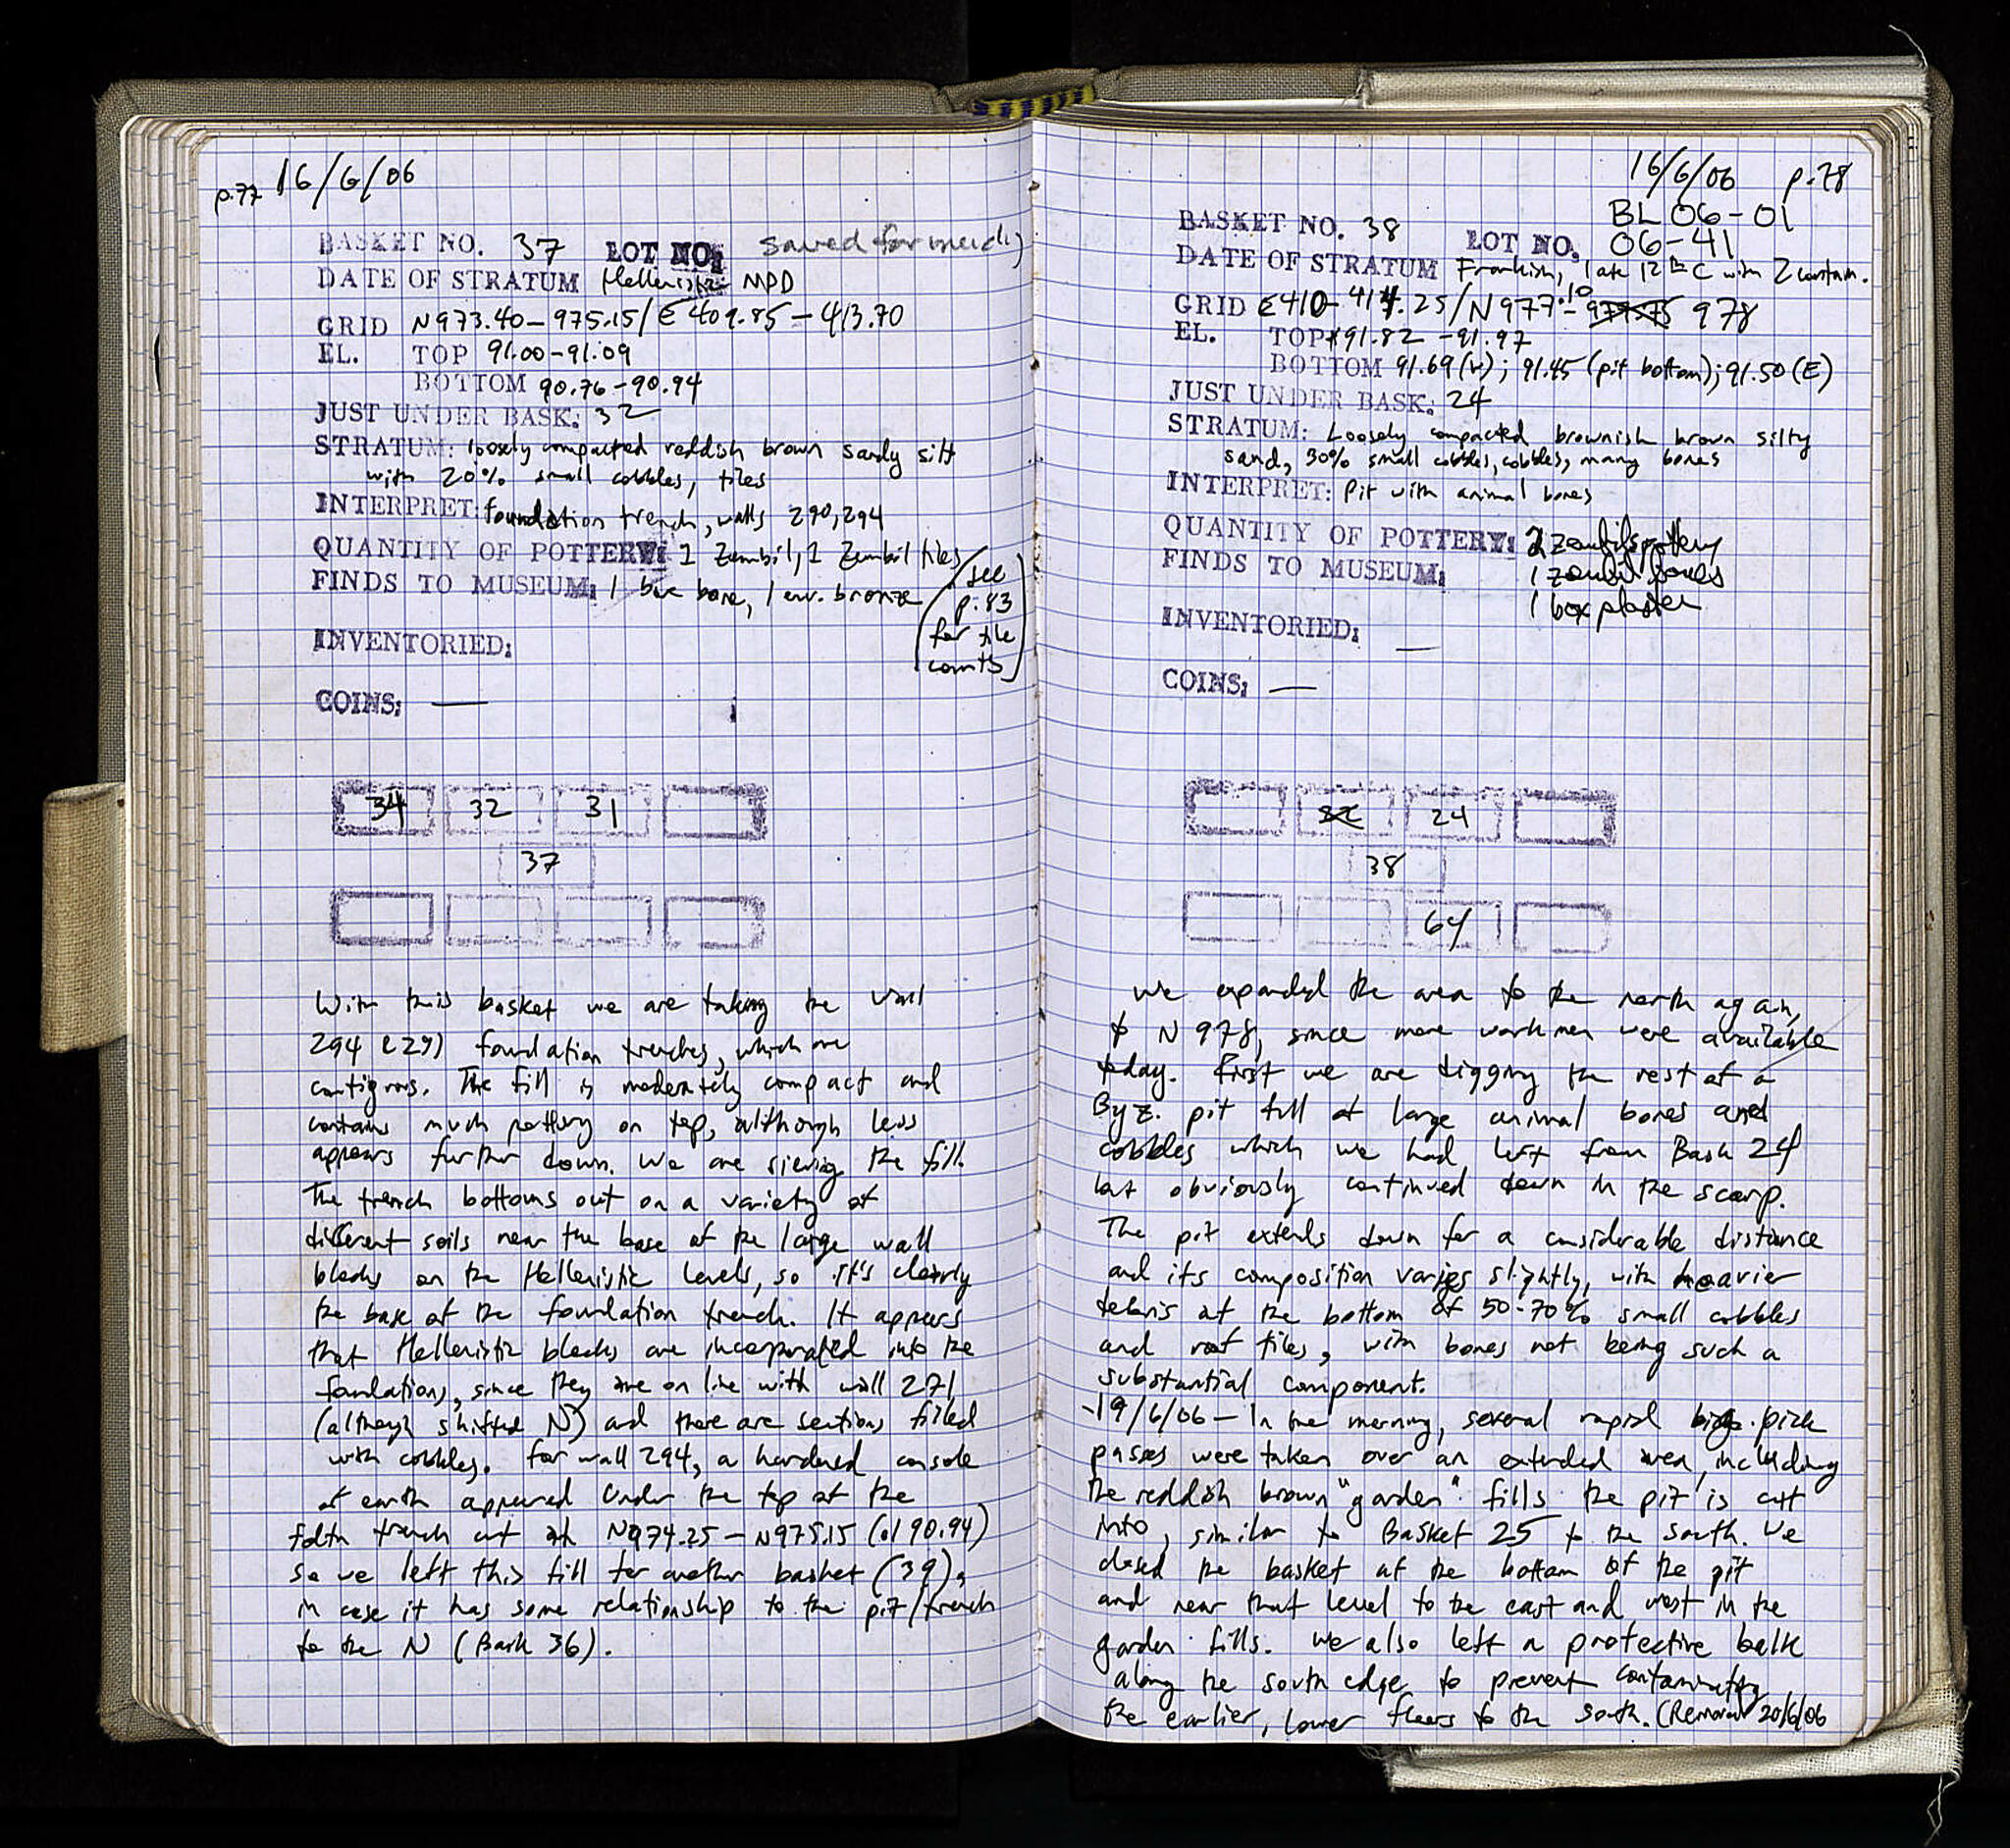 p.77 16/6/06
BASKET NO. 37 LOT NO: saved for
DATE OF STRATUM Hellenistic MPD
GRID N973.40-975.15/E409.85-413.70
EL. TOP 91.00-91.09
BOTTOM 90.76-90.94
JUST UNDER BASK: 32
STRATUM: loosely compacted reddish brown sandy silt
with 20% small cobbles, tiles
INTERPRET: foundation trench, walls 290, 294
QUANTITY OF POTTERY: 1 Zembil, 1 Zembil tiles
FINDS TO MUSEUM: 1 box bone, 1 env. bronze
(see
p. 83
for tile
counts)
INVENTORIED:
COINS: —
34 32 31
37
With this basket we are taking the wall
294 foundation trenches, which are
contiguous. The fill is moderately compact and
contains much pottery on top, although less
appears further down. We are sieving the fill.
The trench bottoms out on a variety of
different soils near the base of the large wall
blocks on the Hellenistic levels, so it's clearly
the base of the foundation trench. It appears
that Hellenistic blocks are incorporated into the
foundations, since they are on line with wall 271
(although shifted N) and there are sections filled
with cobbles. For wall 294, a hardened console
of earth appeared under the top of the
fdtn trench cut at N974.25-N975.15 (el 90.94)
so we left this fill for another basket (39),
in case it has some relationship to the pit/trench
to the N (Bask 36).
16/6/06 p.78
BL 06-01
BASKET NO. 38 LOT NO. 06-41
DATE OF STRATUM Frankish, late 12th C with 2 contam.
GRID E410-414.25/N977.10-978
EL. TOP 91.82-91.97
BOTTOM 91.69 (W); 91.45 (pit bottom); 91.50 (E)
JUST UNDER BASK: 24
STRATUM: Loosely compacted brownish brown silty
sand, 30% small cobbles, cobbles, many bones
INTERPRET: Pit with animal bones
QUANTITY OF POTTERY: 2 zembils pottery
FINDS TO MUSEUM: 1 zembil bones
1 box plaster
INVENTORIED: —
COINS: —
32 24
38
64
We expanded the area to the north again,
to N 978, since more workmen were available
today. First we are digging the rest of a
Byz. pit full of large animal bones and
cobbles which we had left from Bask 24
but obviously continued down in the scarp.
The pit extends down for a considerable distance
and its composition varies slightly, with heavier
debris at the bottom of 50-70% small cobbles
and roof tiles, with bones not being such a
substantial component.
-19/6/06- In the morning, several rapid big pick
passes were taken over an extended area, including
the reddish brown "garden" fills the pit is cut
into, similar to Basket 25 to the south. We
closed the basket at the bottom of the pit
and near that level to the east and west in the
garden fills. We also left a protective balk
along the south edge to prevent contaminating
the earlier, lower floors to the south. (Removed 20/6/06